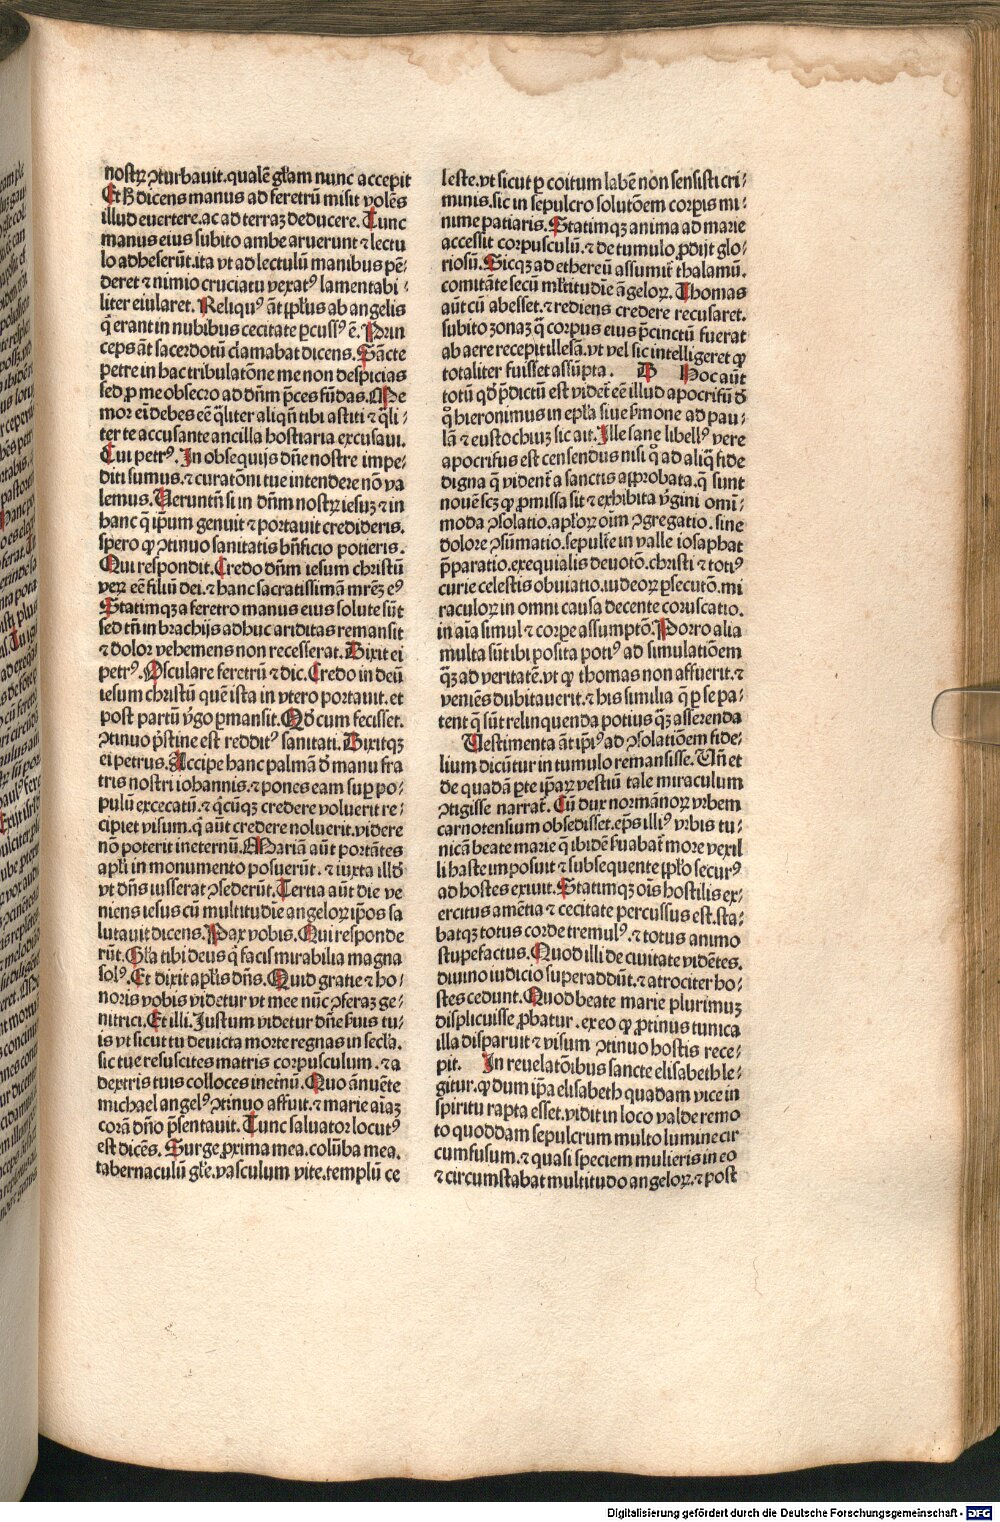 nostrꝝ ꝯturbauit. qualē gl̄am nunc accepit
Et h̄ dicens manus ad feretrū misit volēs
illud euertere. ac ad terraꝫ deducere. Tunc
manus eius subito ambe aruerunt ⁊ lectu
lo adheserūt. ita vt ad lectulū manibus pē⸗
deret ⁊ nimio cruciatu vexatꝰ lamentabi⸗
liter eiularet. Reliquꝰ āt pp̄lus ab angelis
q̄ erant in nubibus cecitate ꝑcussꝰ ē. Prin
ceps āt sacerdotū clamabat dicens. Sācte
petre in hac tribulatōne me non despicias
sed ꝓ me obsecro ad dn̄m p̄ces fūdas. Me
mor ei debes eē q̄liter aliqn̄ tibi astiti ⁊ q̄li⸗
ter te accusante ancilla hostiaria excusaui.
Cui petrꝰ. In obsequijs dn̄e nostre impe⸗
diti sumus. ⁊ curatōni tue intendere nō va
lemus. Ueruntn̄ si in dn̄m nostrꝝ iesuꝫ ⁊ in
hanc q̄ ip̄um genuit ⁊ portauit credideris.
spero ꝙ ꝯtinuo sanitatis bn̄ficio potieris.
Qui respondit. Credo dn̄m iesum christū
verꝝ eē filiū dei. ⁊ hanc sacratissimā mr̄eꝫ eꝰ
Statimqꝫ a feretro manus eius solute sūt
sed tn̄ in brachijs adhuc ariditas remansit
⁊ dolor vehemens non recesserat. Dixit ei
petrꝰ. Osculare feretrū ⁊ dic. Credo in deū
iesum christū quē ista in vtero portauit. et
post partū v̄go ꝑmansit. Qd̄ cum fecisset.
ꝯtinuo p̄stine est redditꝰ sanitati. Dixitqꝫ
ei petrus. Accipe hanc palmā d̄ manu fra
tris nostri iohannis. ⁊ pones eam suꝑ po⸗
pulū excecatū. ⁊ q̄cūqꝫ credere voluerit re⸗
cipiet visum. q̄ aūt credere noluerit. videre
nō poterit ineternū. Mariā aūt portātes
apl̄i in monumento posuerūt. ⁊ iuxta illd̄
vt dn̄s iusserat ꝯsederūt. Tertia aūt die ve
niens iesus cū multitudīe angelorꝝ ip̄os sa
lutauit dicens. Pax vobis. Qui responde
rūt. Gl̄a tibi deus q̄ facis mirabilia magna
solꝰ. Et dixit apl̄is dn̄s. Quid gratie ⁊ ho⸗
noris vobis videtur vt mee nūc ꝯferaꝫ ge⸗
nitrici. Et illi. Justum videtur dn̄e ſuis tu⸗
is vt sicut tu deuicta morte regnas in secl̄a.
sic tue resuscites matris corpusculum. ⁊ a
dextris tuis colloces inetn̄ū. Quo ānuēte
michael angelꝰ ꝯtinuo affuit. ⁊ marie aīaꝫ
corā dn̄o p̄sentauit. Tunc saluator locutꝰ
est dicēs. Surge ꝓxima mea. colūba mea.
tabernaculū gl̄e. vasculum vite. templū ce
leste. vt sicut ꝑ coitum labē non sensisti cri⸗
minis. sic in sepulcro solutōem corꝑis mi⸗
nime patiaris. Statimqꝫ anima ad marie
accessit corpusculū. ⁊ de tumulo ꝓdijt glo⸗
riosū. Sicqꝫ ad ethereū assumit̄ thalamū.
comitāte secū ml̄titudīe āgelorꝝ. Thomas
aūt cū abesset. ⁊ rediens credere recusaret.
subito zonaꝫ q̄ corpus eius p̄cinctū fuerat
ab aere recepit illesā. vt vel sic intelligeret ꝙ
totaliter fuisset assūpta. B Hoc aūt
totū qd̄ p̄dictū est videt̄ eē illud apocrifū d̄
q̊ hieronimus in ep̄la siue ẜmone ad pau⸗
lā ⁊ eustochiuꝫ sic ait. Ille sane libellꝰ vere
apocrifus est censendus nisi q̊ ad aliq̄ fide
digna q̄ vident̄ a sanctis approbata. q̄ sunt
nouē scꝫ ꝙ ꝓmissa sit ⁊ exhibita v̄gini omī⸗
moda ꝯsolatio. apl̄orꝝ oīm ꝯgregatio. sine
dolore ꝯsūmatio. sepult̄e in valle iosaphat
p̄paratio. exequialis deuotō. christi ⁊ totiꝰ
curie celestis obuiatio. iudeorꝝ ꝑsecutō. mi
raculorꝝ in omni causa decente coruscatio.
in aīa simul ⁊ corꝑe assumptō. Porro alia
multa sūt ibi posita potiꝰ ad simulatiōem
q̄ꝫ ad veritatē. vt ꝙ thomas non affuerit. ⁊
veniēs dubitauerit. ⁊ his similia q̄ ꝑ se pa⸗
tent q̄ sūt relinquenda potius q̄ꝫ asserenda
Uestimenta āt ip̄iꝰ ad ꝯsolatiōem fide⸗
lium dicūtur in tumulo remansisse. Un̄ et
de quadā ꝑte ip̄arꝝ vestiū tale miraculum
ꝯtigisse narrat̄. Cū dux normānorꝝ vrbem
carnotensium obsedisset. ep̄s illiꝰ vrbis tu⸗
nicā beate marie q̄ ibidē ẜuabat̄ more vexil
li haste imposuit ⁊ subsequente pp̄lo securꝰ
ad hostes exiuit. Statimqꝫ oīs hostilis ex⸗
ercitus amētia ⁊ cecitate percussus est. sta⸗
batqꝫ totus corde tremulꝰ. ⁊ totus animo
stupefactus. Quod illi de ciuitate vidētes.
diuino iudicio superaddūt. ⁊ atrociter ho⸗
stes cedunt. Quod beate marie plurimuꝫ
displicuisse ꝓbatur. ex eo ꝙ ꝓtinus tunica
illa disparuit ⁊ visum ꝯtinuo hostis rece⸗
pit. In reuelatōibus sancte elisabeth le⸗
gitur. ꝙ dum ip̄a elisabeth quadam vice in
spiritu rapta esset. vidit in loco valde remo
to quoddam sepulcrum multo lumine cir
cumfusum. ⁊ quasi speciem mulieris in eo
⁊ circumstabat multitudo angelorꝝ. ⁊ post
Digitalisierung gefördert durch die Deutsche Forschungsgemeinschaft - DFG